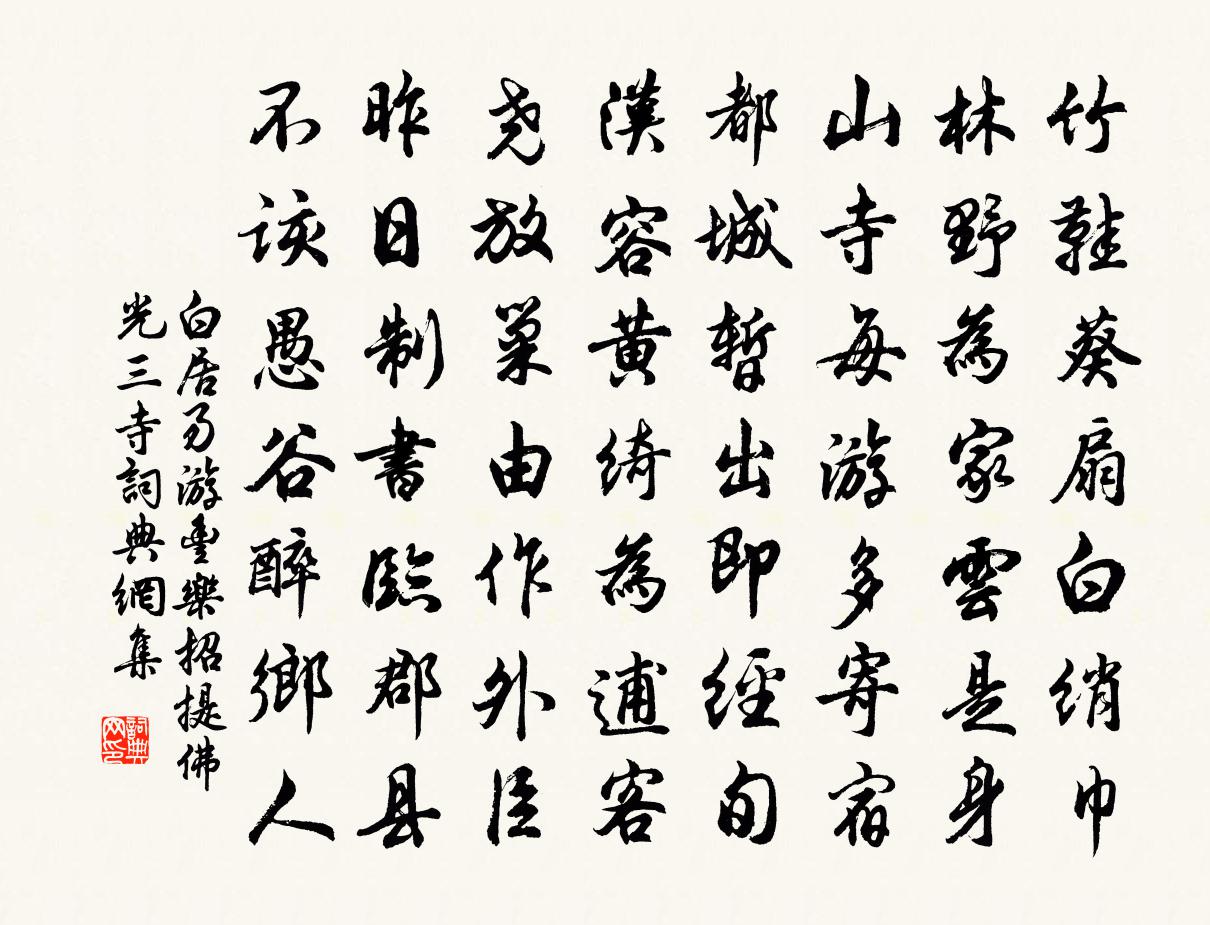 竹鞋葵扇白綃巾
林野為家雲是身
山寺每游多寄宿
都城暫出即經旬
漢容黃綺為逋客
尧放巢由作外臣
昨日制書臨郡县
不該愚谷醉鄉人
白居易游豐樂招提佛
光三寺詞典網集
詞典
网印